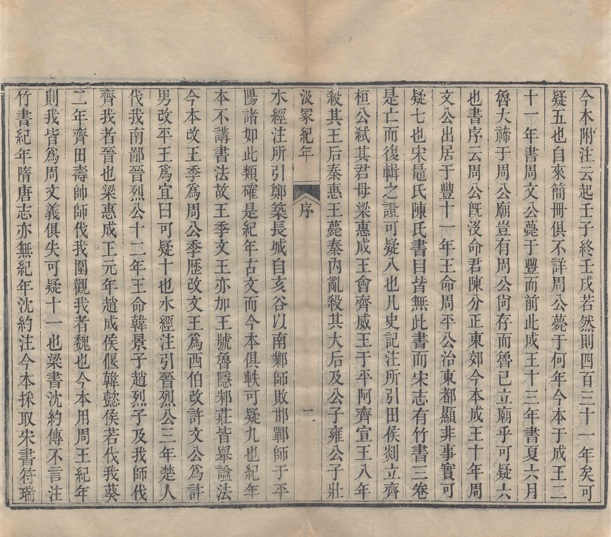 今本附注云起壬子終壬戌若然則四百三十一年矣可
疑五也自來簡冊俱不詳周公薨于何年今本于成王二
十一年書周文公薨于豐而前此成王十三年書夏六月
魯大禘于周公廟豈有周公尚存而魯已立廟乎可疑六
也書序云周公既沒命君陳分正東郊今本成王十年周
文公出居于豐十一年王命周平公治東都顯非事實可
疑七也宋鼂氏陳氏書目皆無此書而宋志有竹書三卷
是亡而復輯之證可疑八也凡史記注所引田侯剡立齊
桓公弑其君母梁惠成王會齊威王于平阿齊宣王八年
殺其王后秦惠王薨秦內亂殺其大后及公子雍公子壯
汲冢紀年
序
二
水經注所引鄭築長城自亥谷以南鄴師敗邯鄲師于平
陽諸如此類確是紀年古文而今本俱軼可疑九也紀年
本不講書法故王季文王亦加王號魯隱邾莊皆舉謚法
今本改王季爲周公季歷改文王爲西伯改許文公爲許
男改平王爲宜臼可疑十也水經注引晉烈公三年楚人
伐我南鄙晉烈公十二年王命韓景子趙烈子及我師伐
齊我者晉也梁惠成王元年趙成侯偃韓懿侯若伐我葵
二年齊田壽帥師伐我圍觀我者魏也今本用周王紀年
則我皆爲周文義俱失可疑十一也梁書沈約傳不言注
竹書紀年隋唐志亦無紀年沈約注今本採取宋書符瑞